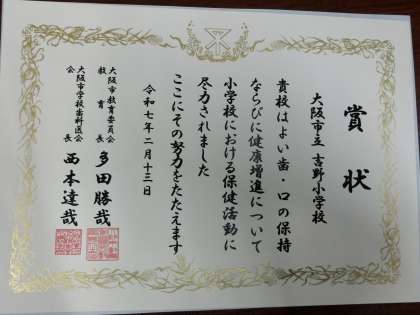 賞状
大阪市立 吉野小学校
貴校はよい歯・口の保持
ならびに健康増進について
小学校における保健活動に
尽力されました
ここにその努力をたたえます
令和七年二月十三日
大阪市教育委員会
教育長 多田勝哉
大阪市学校歯科医会
会長 西本達哉